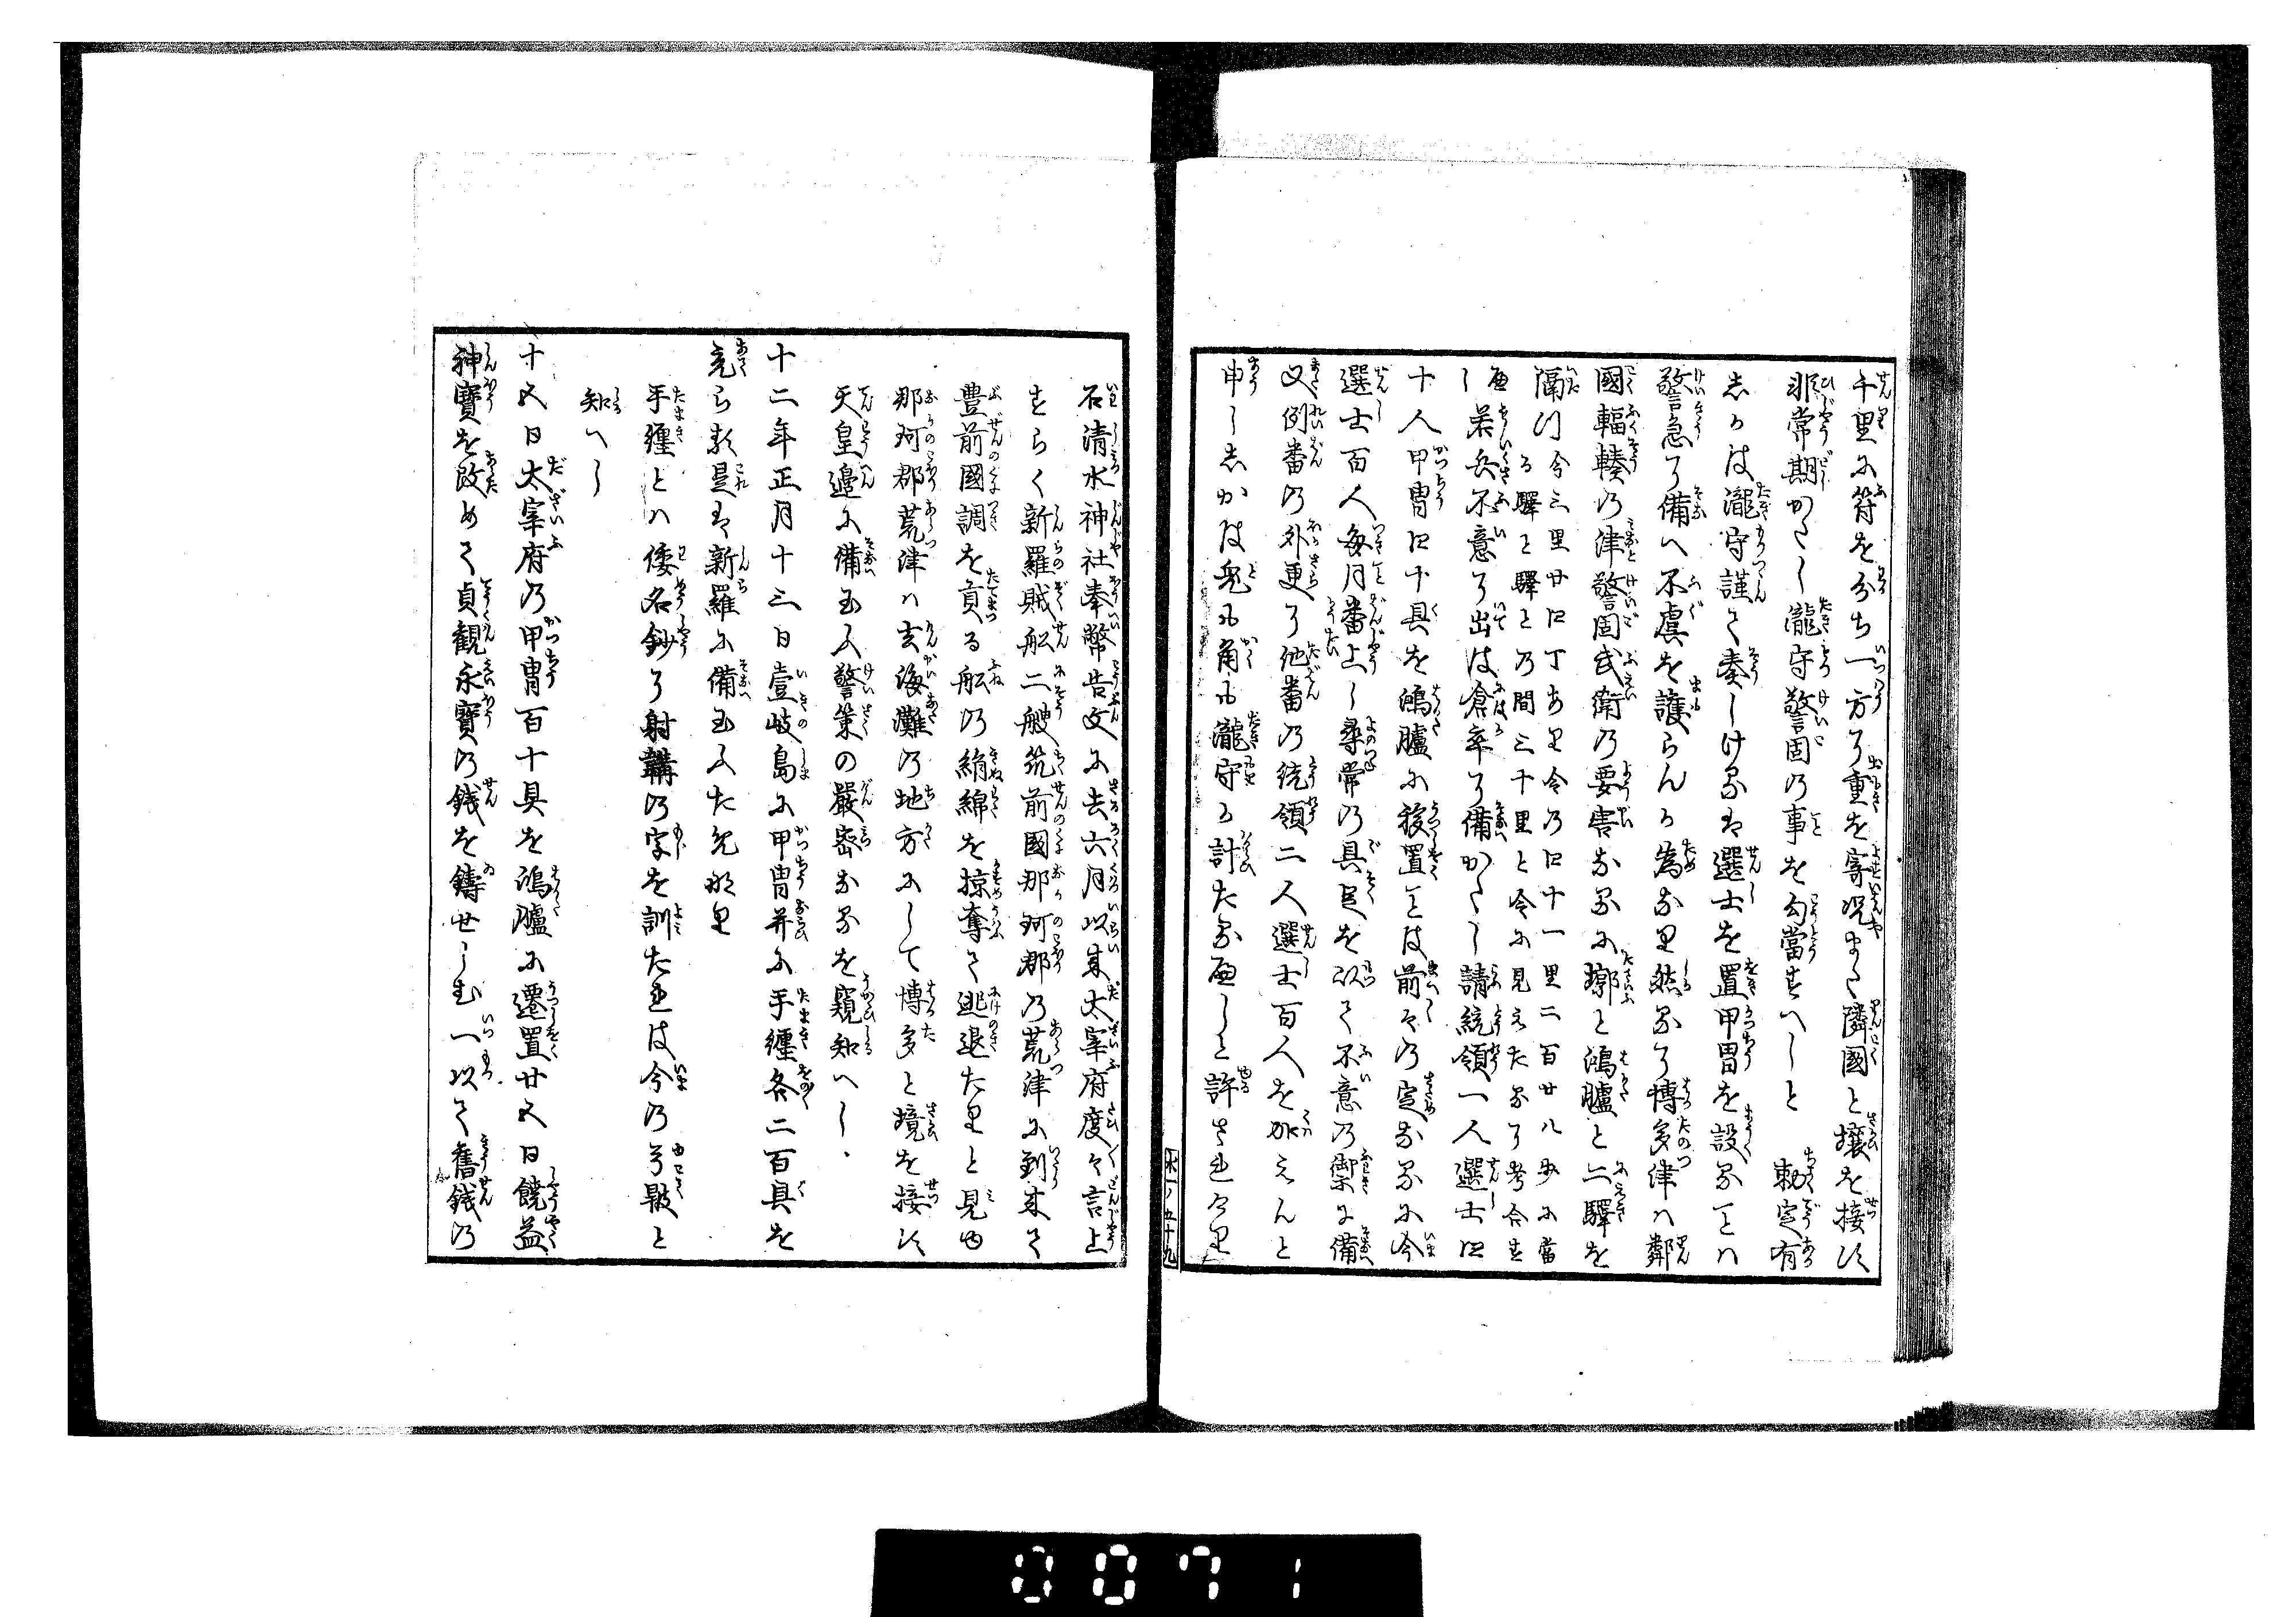 千里に符を分ち一方に重を寄況また隣國と壌を接に
非常期かたし瀧守警固の事を勾當すへしと　勅定有
しかは瀧守謹て奏しけるは選士を置甲冑を設ることハ
警急に備へ不虞を護らんか為なり然るに博多津ハ鄰
國輻輳の津警固武衛の要害なるに墎と鴻臚と二驛を
隔つ今三里廿四丁あり令の四十一里二百廿八歩に當
る驛と驛との間三十里と令に見えたるに考合す
へし若兵不意に出は倉卒に備かたし請統領一人選士四
十人甲冑四十具を鴻臚に移置ことは前々の定なるに今
選士百人毎月番上し尋常の具足を以て不意の禦に備
又例番の外更に他番の統領二人選士百人を加えんと
申しゝかは兎に角に瀧守か計たるへしと許されけり
石清水神社奉幣告文に去六月以来太宰府度々言上
すらく新羅賊船二艘筑前國那珂郡の荒津に到来て
豊前國調を貢る船の絹綿を掠奪て逃退たりと見ゆ
那珂郡荒津ハ玄海灘の地方にして博多と境を接に
天皇邊に備玉ふ警策の嚴密なるを窺知へし
十二年正月十三日壹岐島に甲冑并に手纏各二百具を
充らる是は新羅に備玉ふためなり
手纏とハ倭名鈔に射韝の字を訓たれは今の弓𩎟と
知へし
十五日太宰府の甲冑百十具を鴻臚に遷置廿五日饒益
神寶を改めて貞觀永寶の錢を鑄せしむ一以て舊錢の
水一ノ五十九
0071